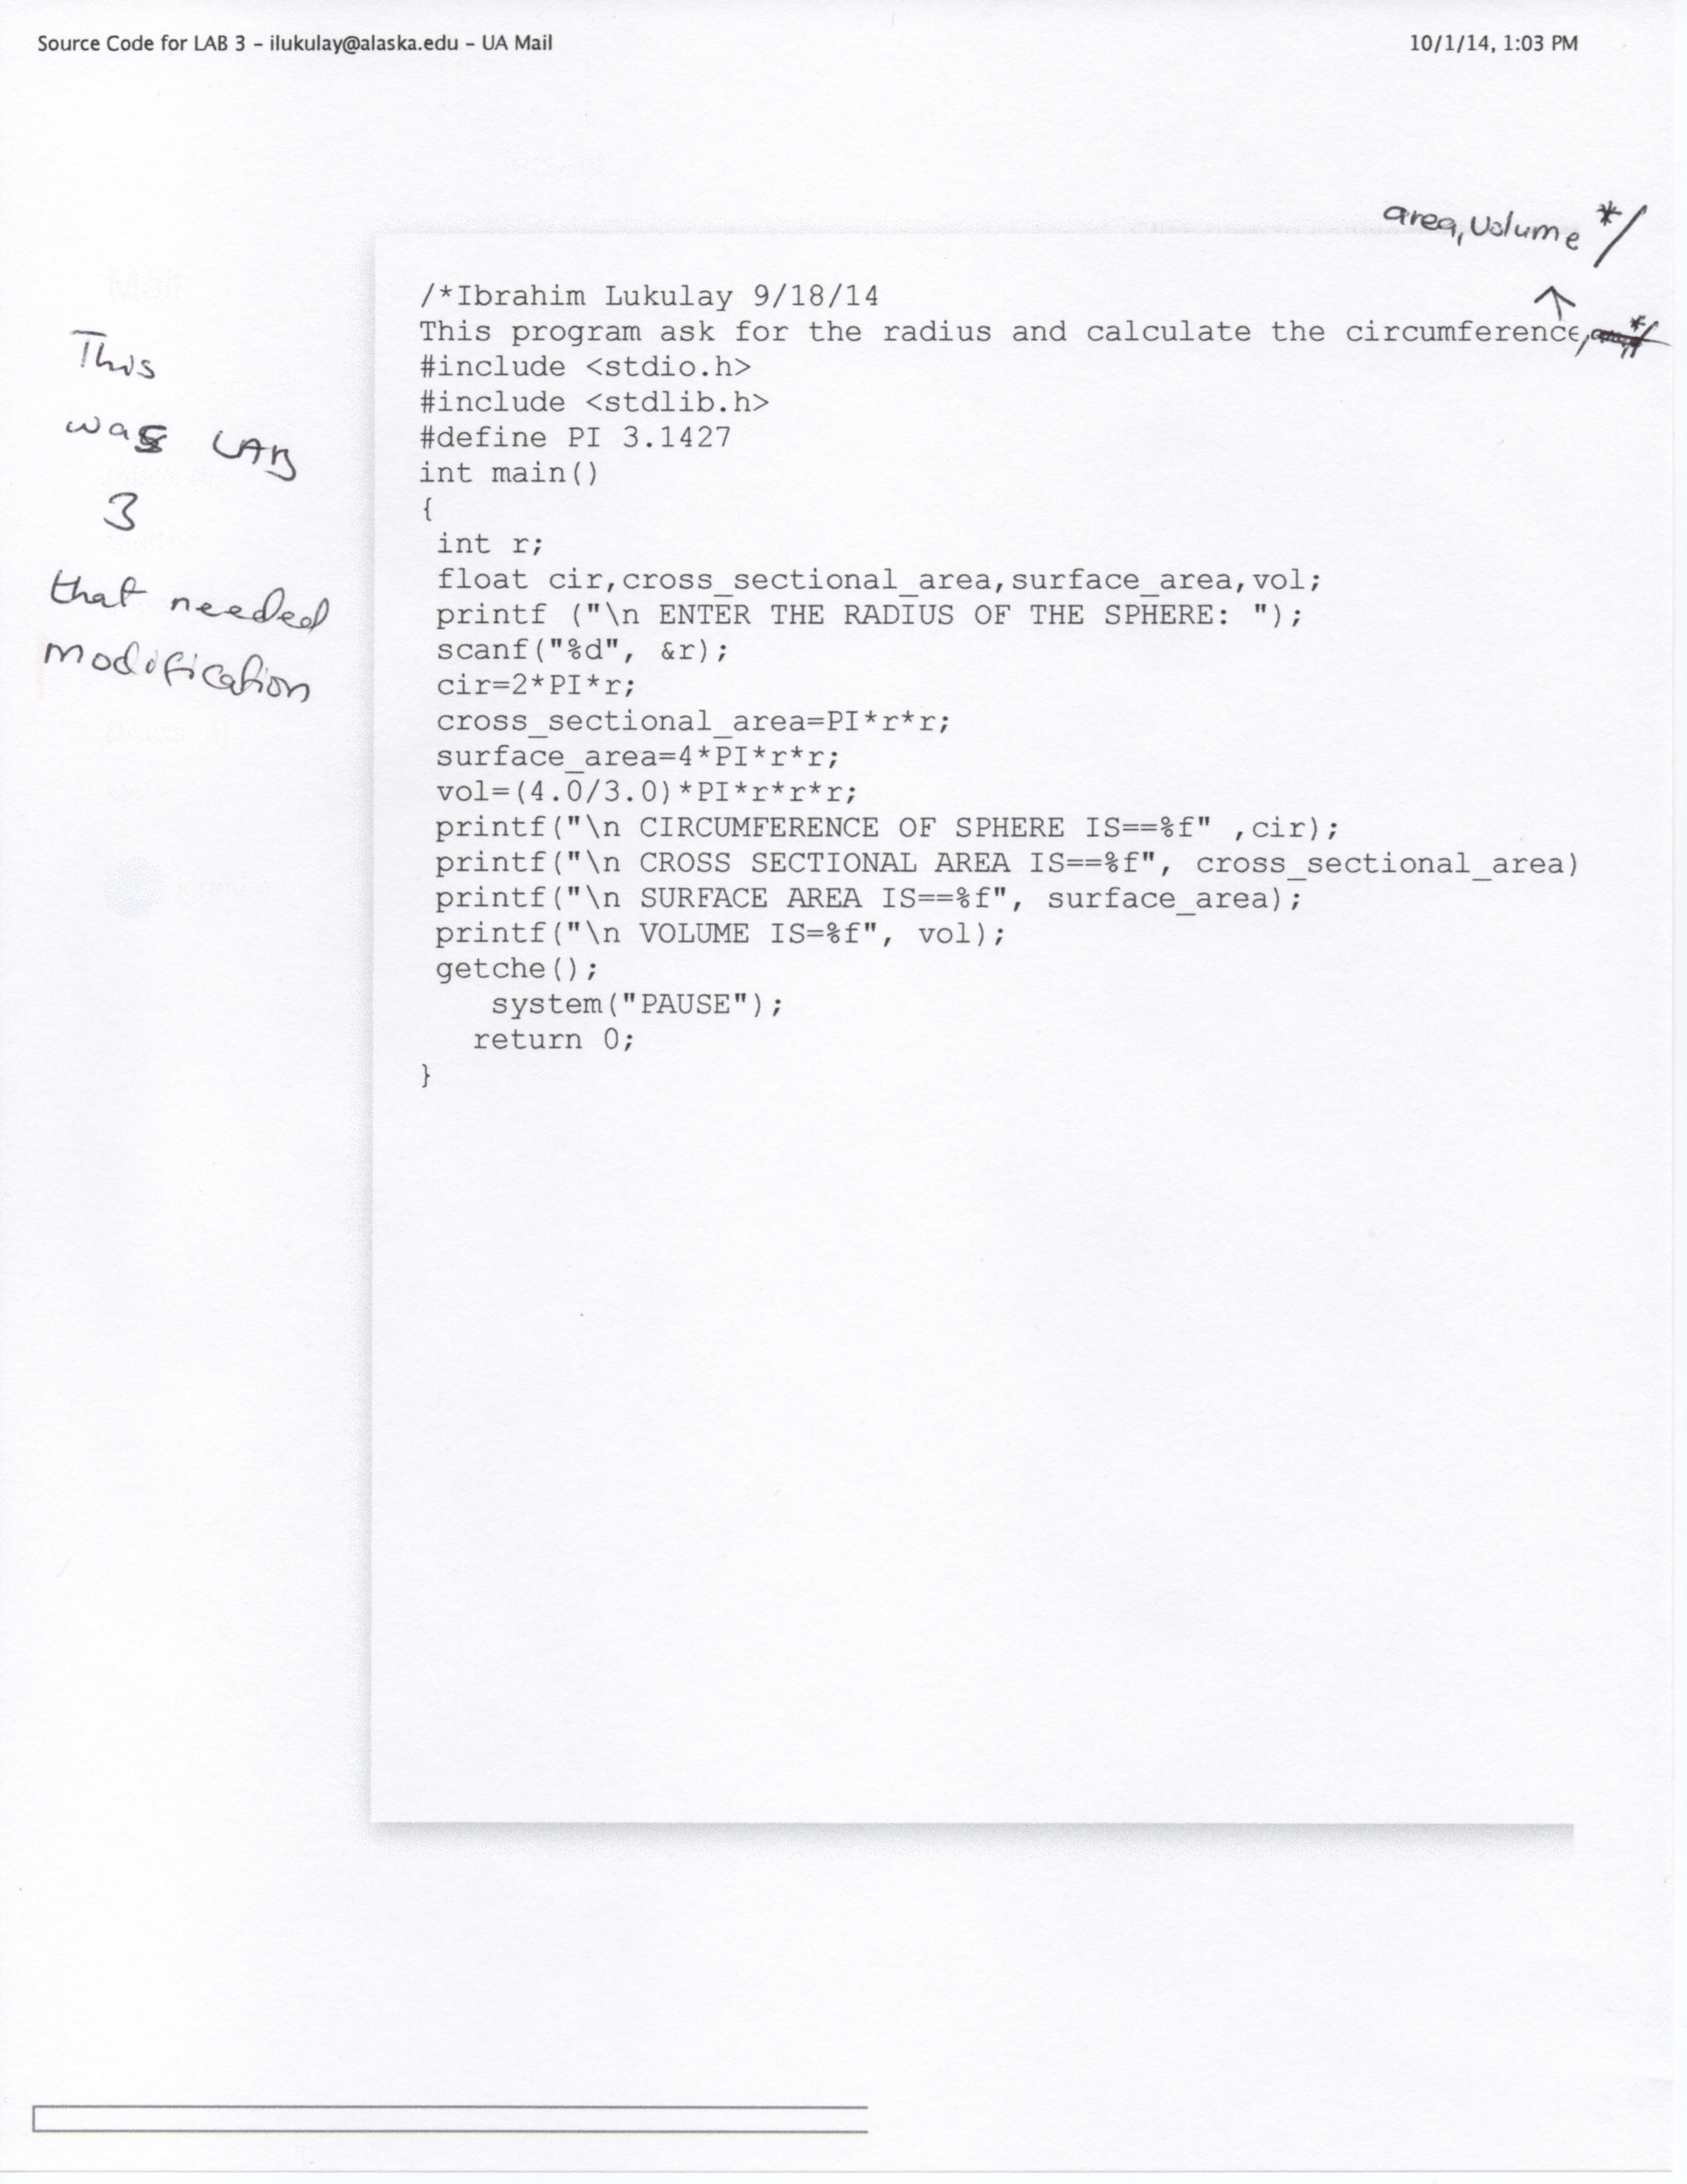 Source Code for LAB 3 - ilukulay@alaska.edu - UA Mail
10/1/14, 1:03 PM
area, Volume */
/*Ibrahim Lukulay 9/18/14
This program ask for the radius and calculate the circumference,
#include <stdio.h>
#include <stdlib.h>
#define PI 3.1427
int main()
{
int r;
float cir,cross_sectional_area,surface_area,vol;
printf ("\n ENTER THE RADIUS OF THE SPHERE: ");
scanf("%d", &r);
cir=2*PI*r;
cross_sectional_area=PI*r*r;
surface_area=4*PI*r*r;
vol=(4.0/3.0)*PI*r*r*r;
printf("\n CIRCUMFERENCE OF SPHERE IS==%f" ,cir);
printf("\n CROSS SECTIONAL AREA IS==%f", cross_sectional_area)
printf("\n SURFACE AREA IS==%f", surface_area);
printf("\n VOLUME IS=%f", vol);
getche();
system("PAUSE");
return 0;
}
This
was LAB
3
that needed
modification